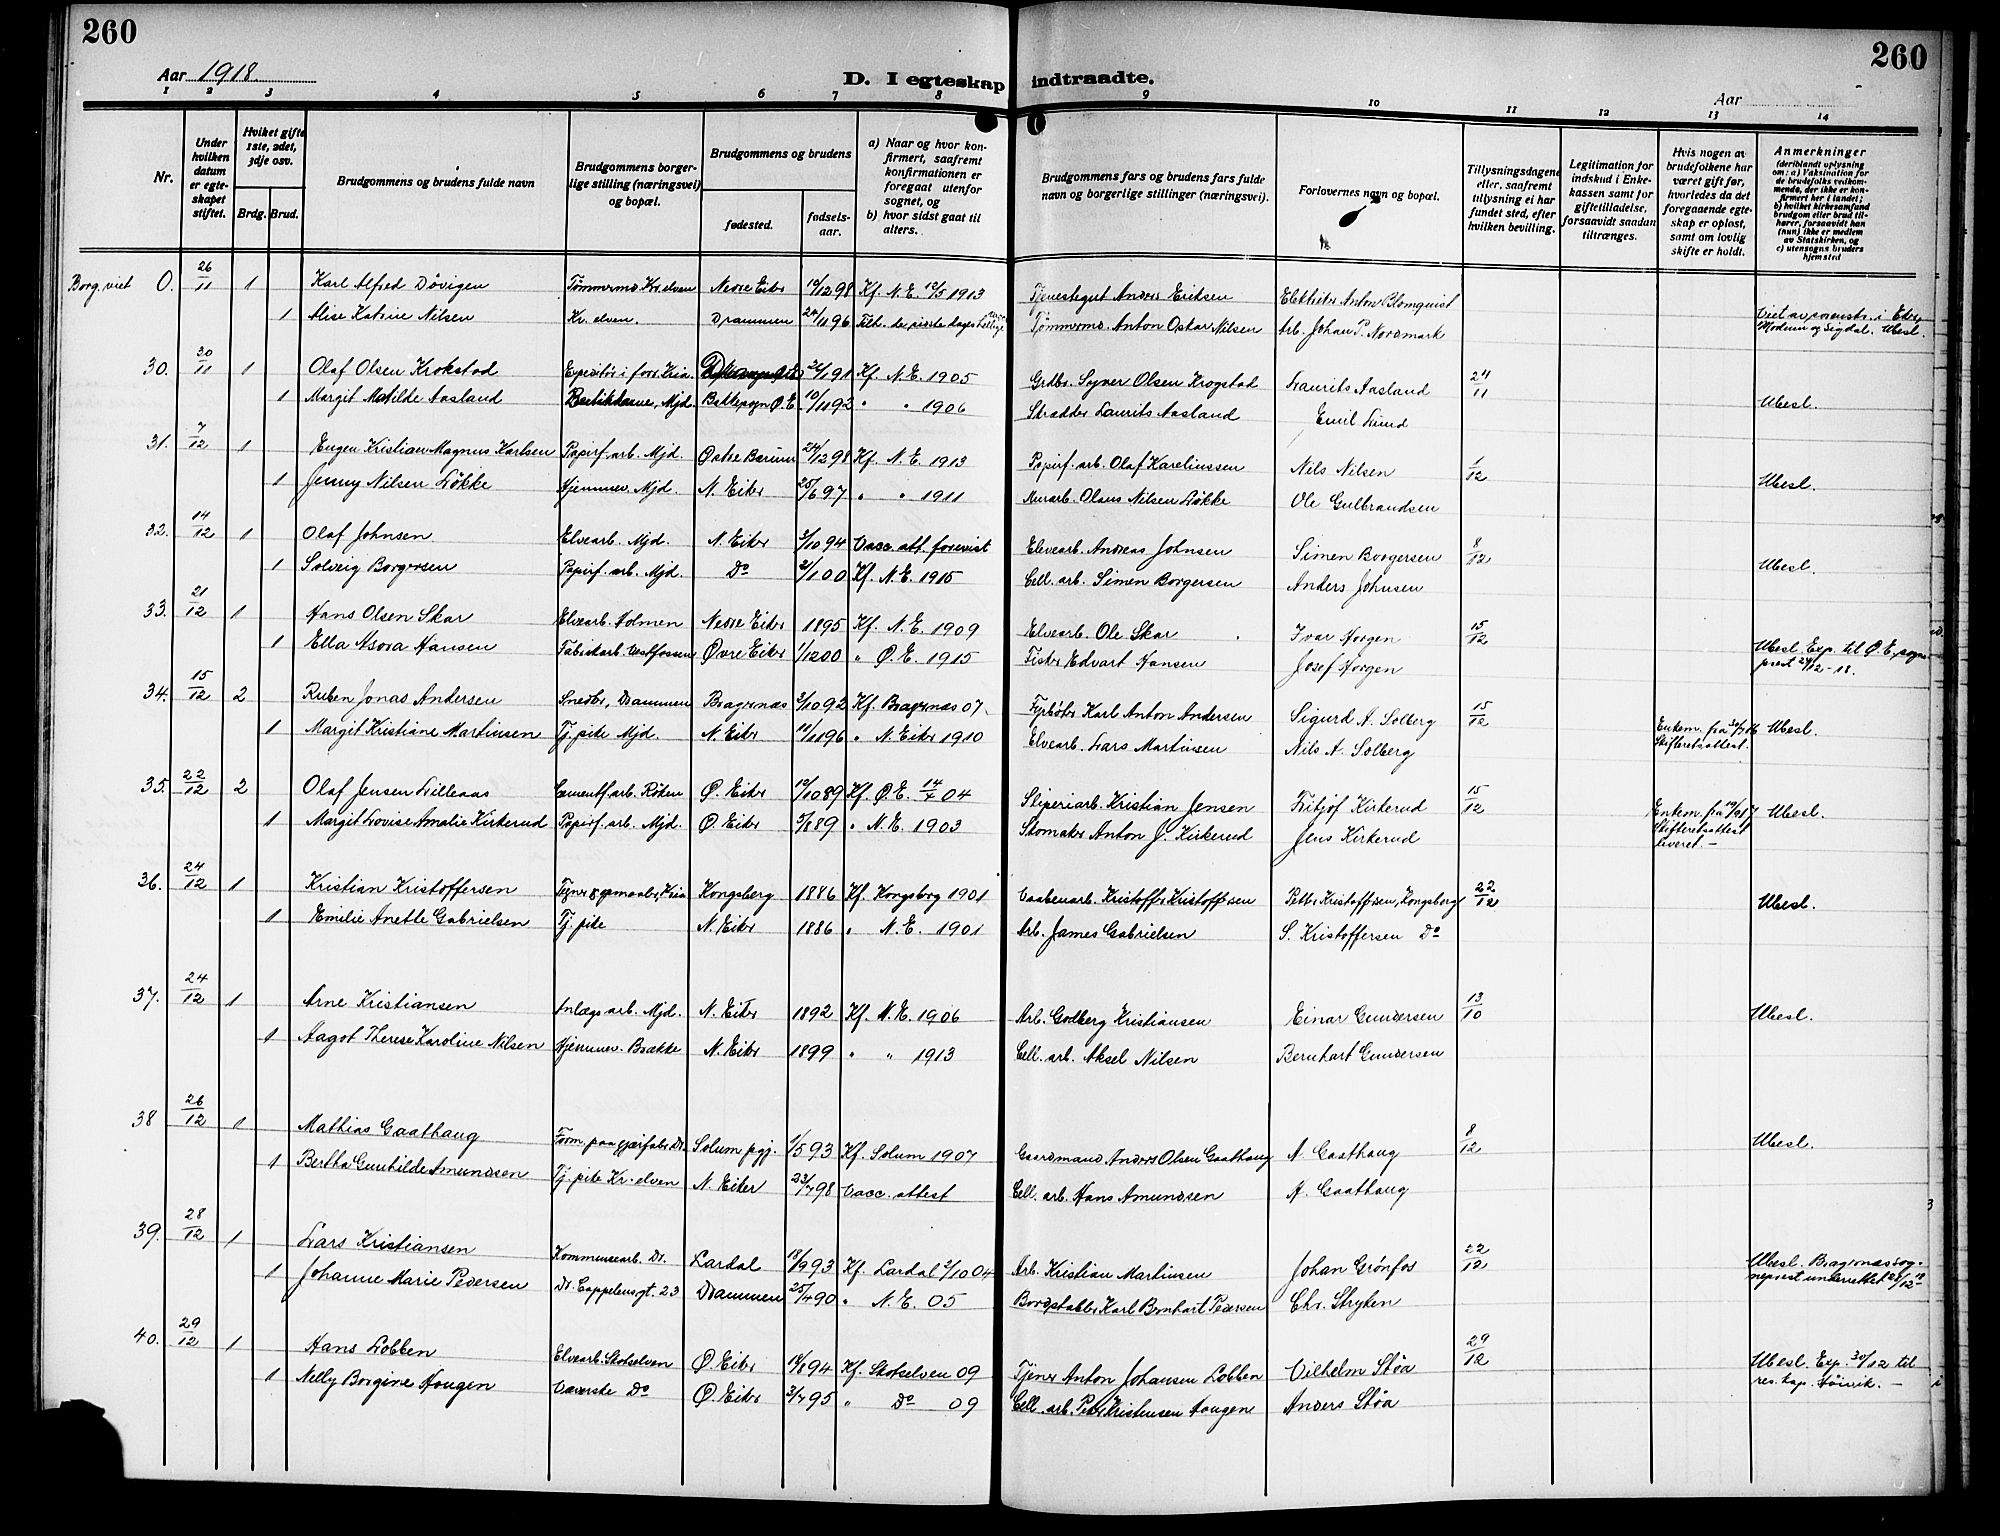 260
260
Aar 1918.
D. I egteskap indtraadte.
Aar
1 2 3 4 5 6 7 8 9 10 11 12 13 14
Nr.
Under hvilken datum er egteskapet stiftet.
Hvilket gifte 1ste, 2det, 3dje osv.
Brdg. Brud.
Brudgommens og brudens fulde navn
Brudgommens borgerlige stilling (næringsvei) og bopæl.
Brudgommens og brudens
fødested.
fødselsaar.
a) Naar og hvor konfirmert, saafremt konfirmationen er foregaat utenfor sognet, og
b) hvor sidst gaat til alters.
Brudgommens fars og brudens fars fulde navn og borgerlige stillinger (næringsvei).
Forlovernes navn og bopæl.
Tillysningsdagene eller, saafremt tillysning ei har fundet sted, efter hvilken bevilling.
Legitimation for indskud i Enkekassen samt for giftetilladelse, forsaavidt saadan tiltrænges.
Hvis nogen av brudefolkene har været gift før, hvorledes da det foregaaende egteskap er opløst, samt om lovlig skifte er holdt.
Anmerkninger
(deriblandt oplysning om: a) Vaksination for de brudefolks vedkommende, der ikke er konfirmert her i landet; b) hvilket kirkesamfund brudgom eller brud tilhører, forsaavidt han (hun) ikke er medlem av Statskirken, og c) utensogns bruders hjemsted
Borg. viet 0. 26/11 1 Karl Alfred Døvigen Tømmermd Kr. elven Nedre Eiker 12 98 Kf. N. E. 1913 Tjenestegut Anders Eriksen Elektriker Anton Blomquist
1 Alise Katrine Nilsen Kr. elven. Drammen 24/11 96 Tilh. de sidste dages hellige Tømmermd. Anton Oskar Nilsen Arb. Johan P. Nordmark Viet av sorenskr. i Eker, Modum og Sigdal. Ubesl.
30. 30/11 1 Olaf Olsen Krokstad Expeditør i forr. Kria 91 Kf. N. E. 1905 Grdbr. Syver Olsen Krogstad Laurits Aasland 24/11
1 Margit Matilde Aasland Butikdame, Mjd. Bakkesogn Ø. E. 10/11 92 " " 1906 Skrædder Laurits Aasland Emil Lund Ubesl.
31. 7/12 1 Eugen Kristian Magnus Karlsen Papirf. arb. Mjd. Østre Bærum 24/12 98 Kf. N. E. 1913 Papirf. arb. Olaf Kareliussen Nils Nilsen 1/12
1 Jenny Nilsen Løkke Hjemmev. Mjd. N. Eiker 25/6 97 " " 1911 Murarb. Olaus Nilsen Løkke Ole Gulbrandsen Ubesl.
32. 14/12 1 Olaf Johnsen Elvearb. Mjd. N. Eiker 3/10 94 Vacc. att. forevist Elvearb. Andreas Johnsen Simen Borgersen 8/12
1 Solveig Borgersen Papirf. arb. Mjd. Do 2/1 00 Kf. N. E. 1915 Cell. arb. Simen Borgersen Anders Johnsen Ubesl.
33. 21/12 1 Hans Olsen Skar Elvearb. Holmen Nedre Eiker 1895 Kf. N. E. 1909 Elvearb. Ole Skar Ivar Horgen 15/12
1 Ella Asora Hansen Fabrikarb. Vestfossen Øvre Eiker 1/12 00 " Ø. E. 1915 Fisker Edvart Hansen Josef Horgen Ubesl. Exp. til Ø. E. sogneprest 12-18.
34. 15/12 2 Ruben Jonas Andersen Snedker, Drammen Bragernæs 3/10 92 Kf. Bragernæs 07. Fyrbøter Karl Anton Andersen Sigurd A. Solberg 15/12
1 Margit Kristiane Martinsen Tj. pike Mjd. N. Eiker 11/11 96 " N. Eiker 1910 Elvearb. Lars Martinsen Nils A. Solberg Enkem. fra 16 Skifteretsattest. Ubesl.
35. 22/12 2 Olaf Jensen Lilleaas Cementf. arb. Røken Ø. Eiker 12/10 89 Kf. Ø. E. 04 Sliperiarb. Kristian Jensen Fritjof Kirkerud 15/12
1 Margit Lovise Amalie Kirkerud Papirf. arb. Mjd. Ø. Eiker 3/8 89 " N. E. 1903 Skomaker Anton J. Kirkerud Jens Kirkerud Enkem. fra 17 Skifteretsattest leveret. — Ubesl.
36. 24/12 1 Kristian Kristoffersen Kria Kongsberg 1886 Kf. Kongsberg 1901 Vaabenarb. Kristoffer Kristoffersen Petter Kristoffersen, Kongsberg 22/12
1 Emilie Anette Gabrielsen Tj. pike N. Eiker 1886 " N. E. 1901 Arb. James Gabrielsen S. Kristoffersen Do Ubesl.
37. 24/12 1 Arne Kristiansen Anlægsarb. Mjd. N. Eiker 1892 Kf. N. E. 1906 Arb. Godberg Kristiansen Einar Gundersen 13/10 Ubesl.
1 Aagot Therese Karoline Nilsen Hjemmev. Brække N. Eiker 1899 " " 1913 Cell. arb. Aksel Nilsen Bernhart Gundersen
38 26/12 1 Mathias Gaathaug Form. paa gjærfabr. Dr. Solum pgj. 1/5 93 Kf. Solum 1907 Gaardmand Anders Olsen Gaathaug N. Gaathaug 8/12 Ubesl.
1 Bertha Gunhilde Amundsen Tj. pike Kr. elven N. Eiker 23/7 98 Vacc. attest Cell. arb. Hans Amundsen H. Gaathaug
39. 28/12 1 Lars Kristiansen Kommunearb. Dr. Lardal 18/9 93 Kf. Lardal 2/10 04 Arb. Kristian Martinsen Johan Grønfos 22/12
1 Johanne Marie Pedersen Dr. Cappelensgt. 23 Drammen 25/4 90 " N. E. 05 Bordstabler Karl Bernhart Pedersen Chr. Stryken Ubesl. Bragernæs sogneprest underrettet 12
40. 29/12 1 Hans Lobben Elvearb. Skotselven Ø. Eiker 94 Kf. Skotselven 09 Tjener Anton Johansen Lobben Vilhelm Støa 29/12
1 Nelly Borgine Haugen Væverske Do Ø. Eiker 3/7 95 " Do 09 Cell. arb. Peder Kristensen Haugen Anders Støa Ubesl. Exp. 30/12 til res. kap. Høivik. —